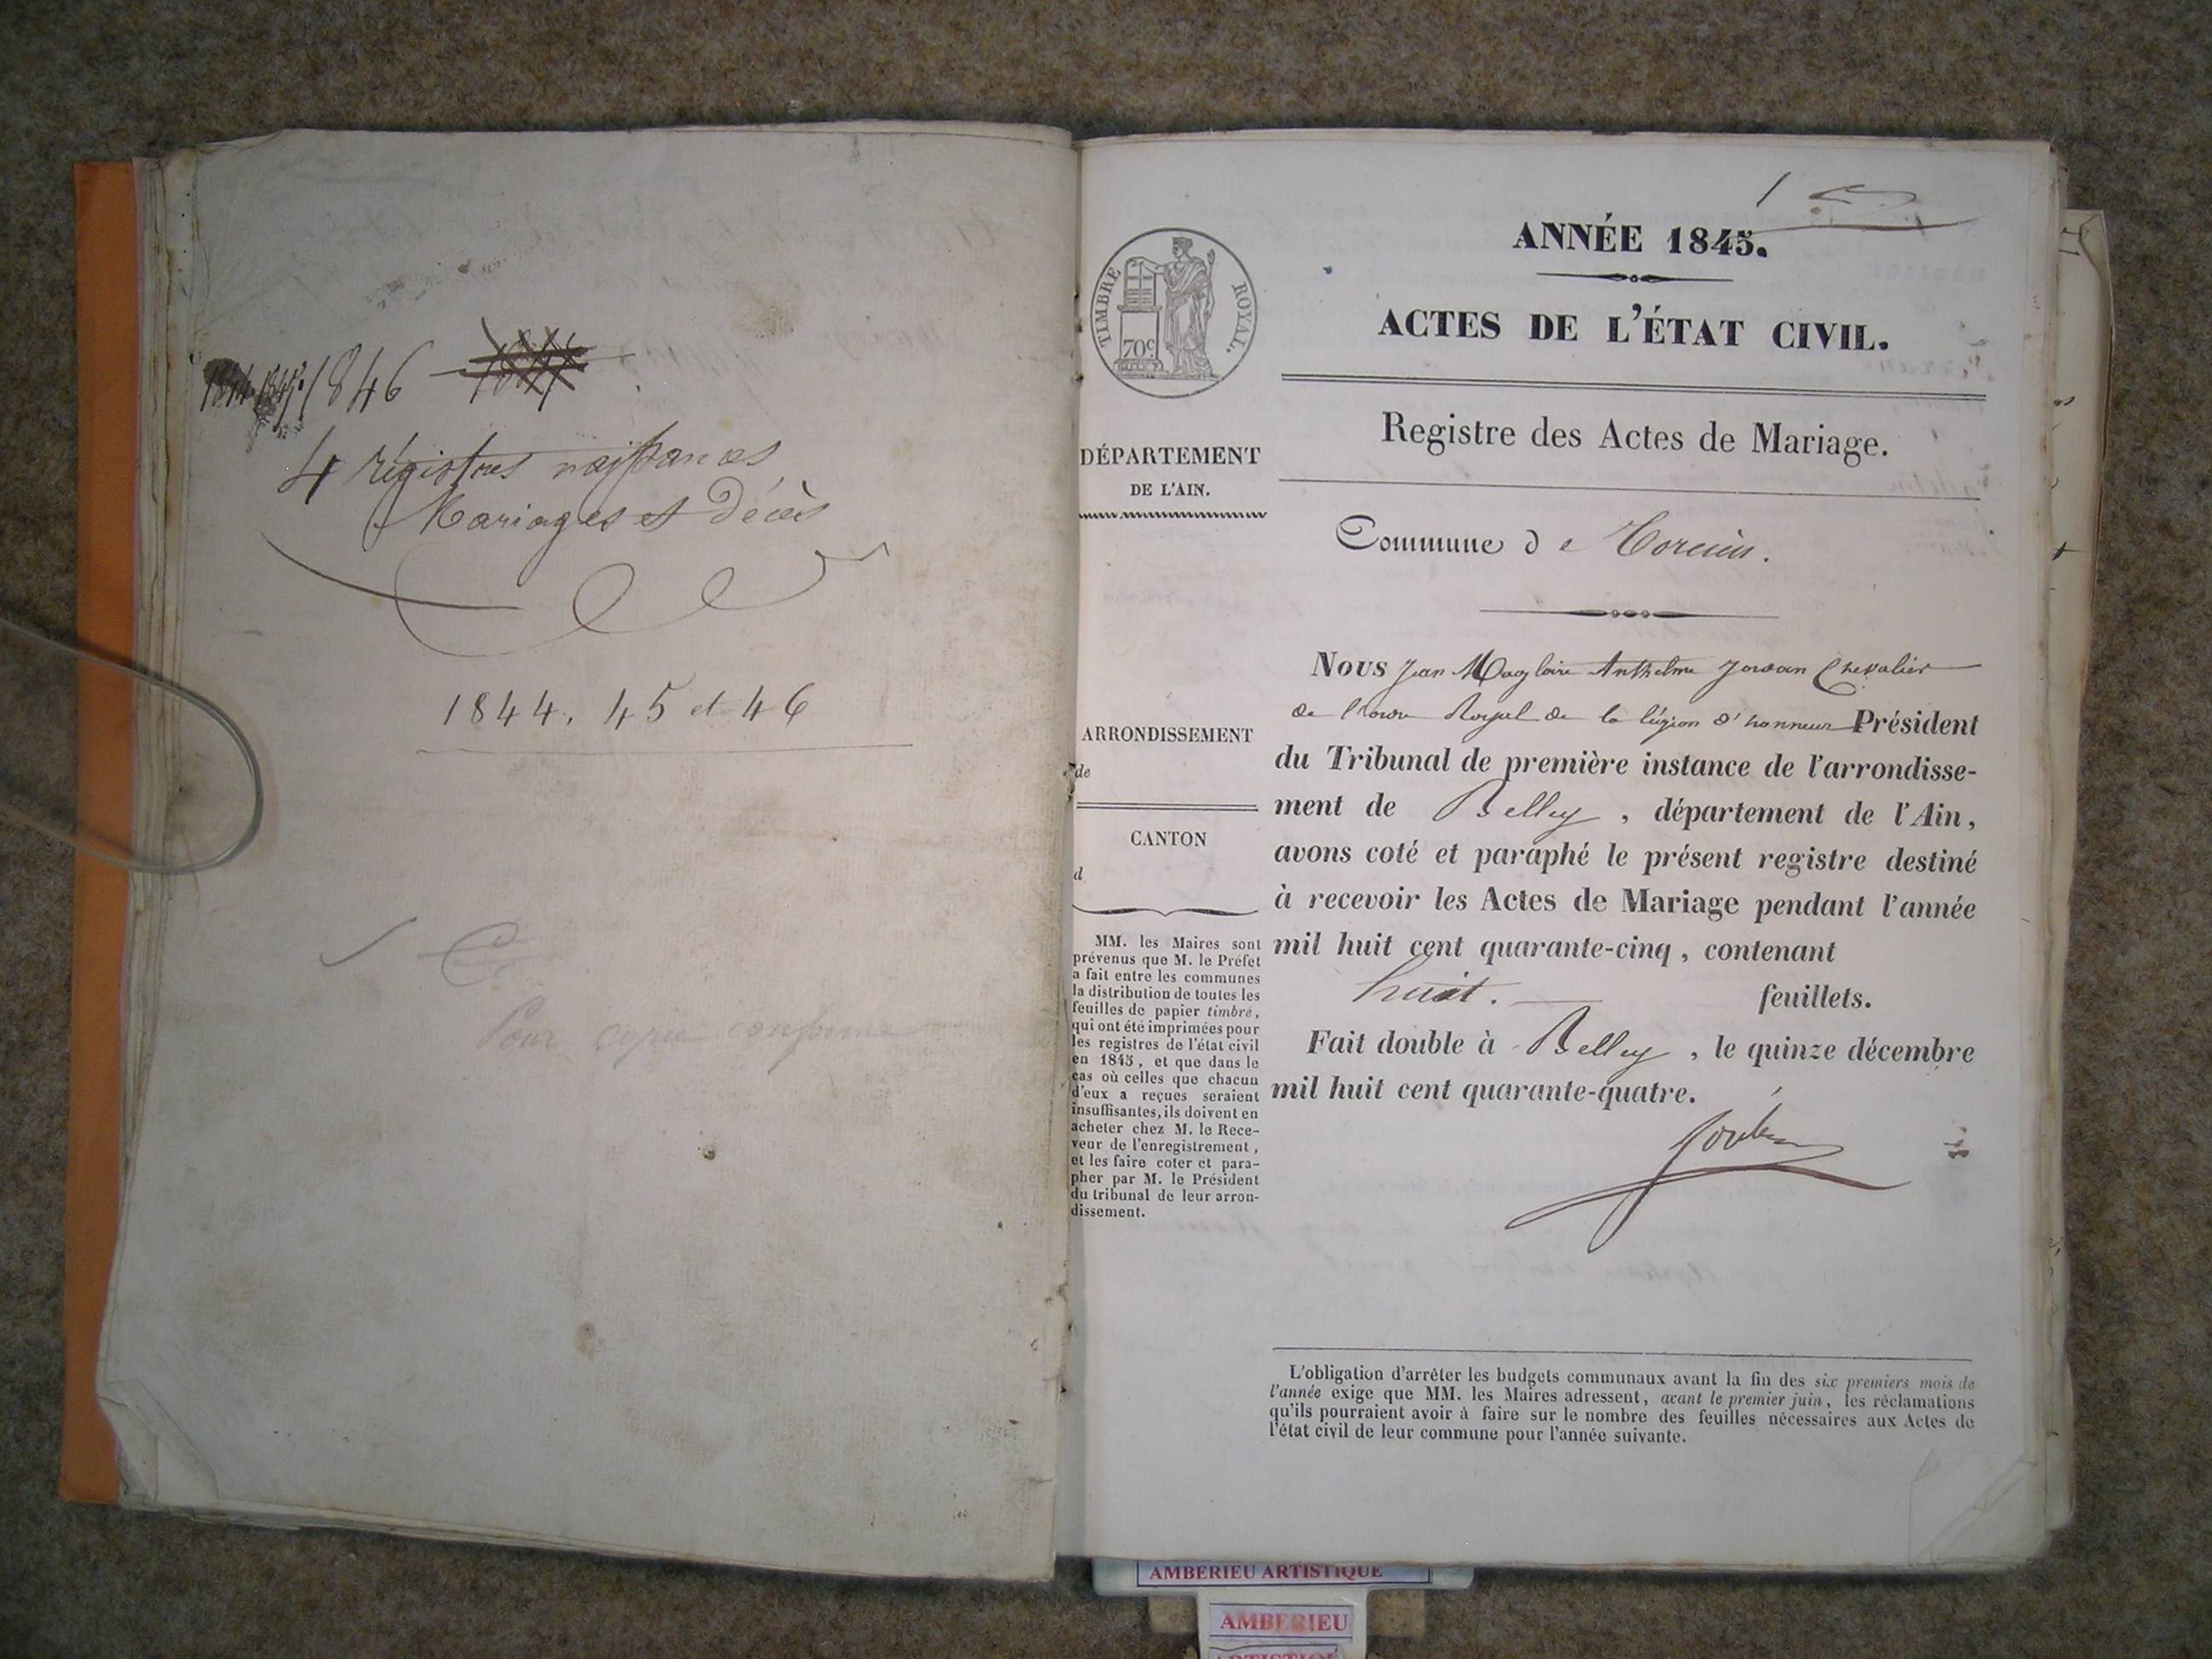 1844. 1845. 1846
4 régistres naissances
Mariages et Décès
1844, 45 et 46
Pour copie conforme
1
ANNÉE 1845.
ACTES DE L'ÉTAT CIVIL.
TIMBRE ROYAL.
70c
Registre des Actes de Mariage.
DÉPARTEMENT
DE L'AIN.
Commune de Torcieu.
ARRONDISSEMENT
de
CANTON
d
MM. les Maires sont
prévenus que M. le Préfet
a fait entre les communes
la distribution de toutes les
feuilles de papier timbré,
qui ont été imprimées pour
les registres de l'état civil
en 1845, et que dans le
cas où celles que chacun
d'eux a reçues seraient
insuffisantes, ils doivent en
acheter chez M. le Rece-
veur de l'enregistrement,
et les faire coter et para-
pher par M. le Président
du tribunal de leur arron-
dissement.
Nous Jean Magloire Anthelme Jordan Chevalier
de l'ordre Royal de la légion d'honneur Président
du Tribunal de première instance de l'arrondisse-
ment de Belley, département de l'Ain,
avons coté et paraphé le présent registre destiné
à recevoir les Actes de Mariage pendant l'année
mil huit cent quarante-cinq, contenant
huit. feuillets.
Fait double à Belley, le quinze décembre
mil huit cent quarante-quatre.
L'obligation d'arrêter les budgets communaux avant la fin des six premiers mois de
l'année exige que MM. les Maires adressent, avant le premier juin, les réclamations
qu'ils pourraient avoir à faire sur le nombre des feuilles nécessaires aux Actes de
l'état civil de leur commune pour l'année suivante.
AMBERIEU ARTISTIQUE
AMBERIEU
ARTISTIQUE